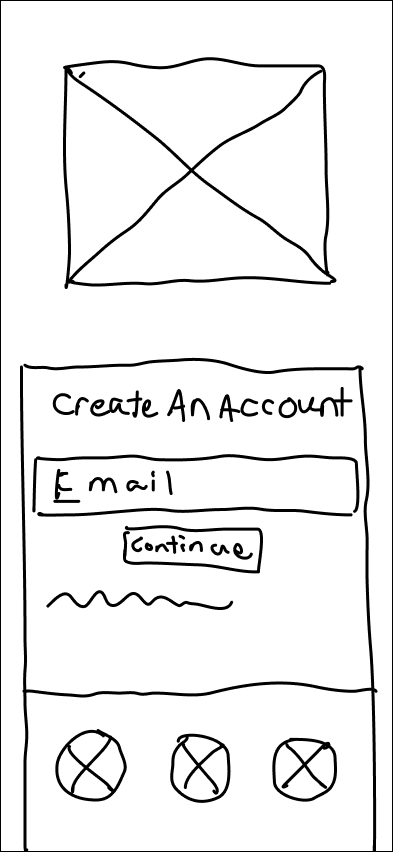 Create An Account
Email
Continue